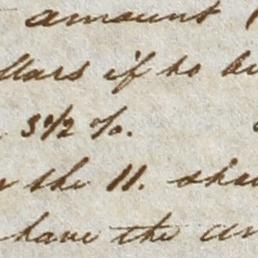 amount
llars if so be
3 1/2 %.
the 11. sha
have the un